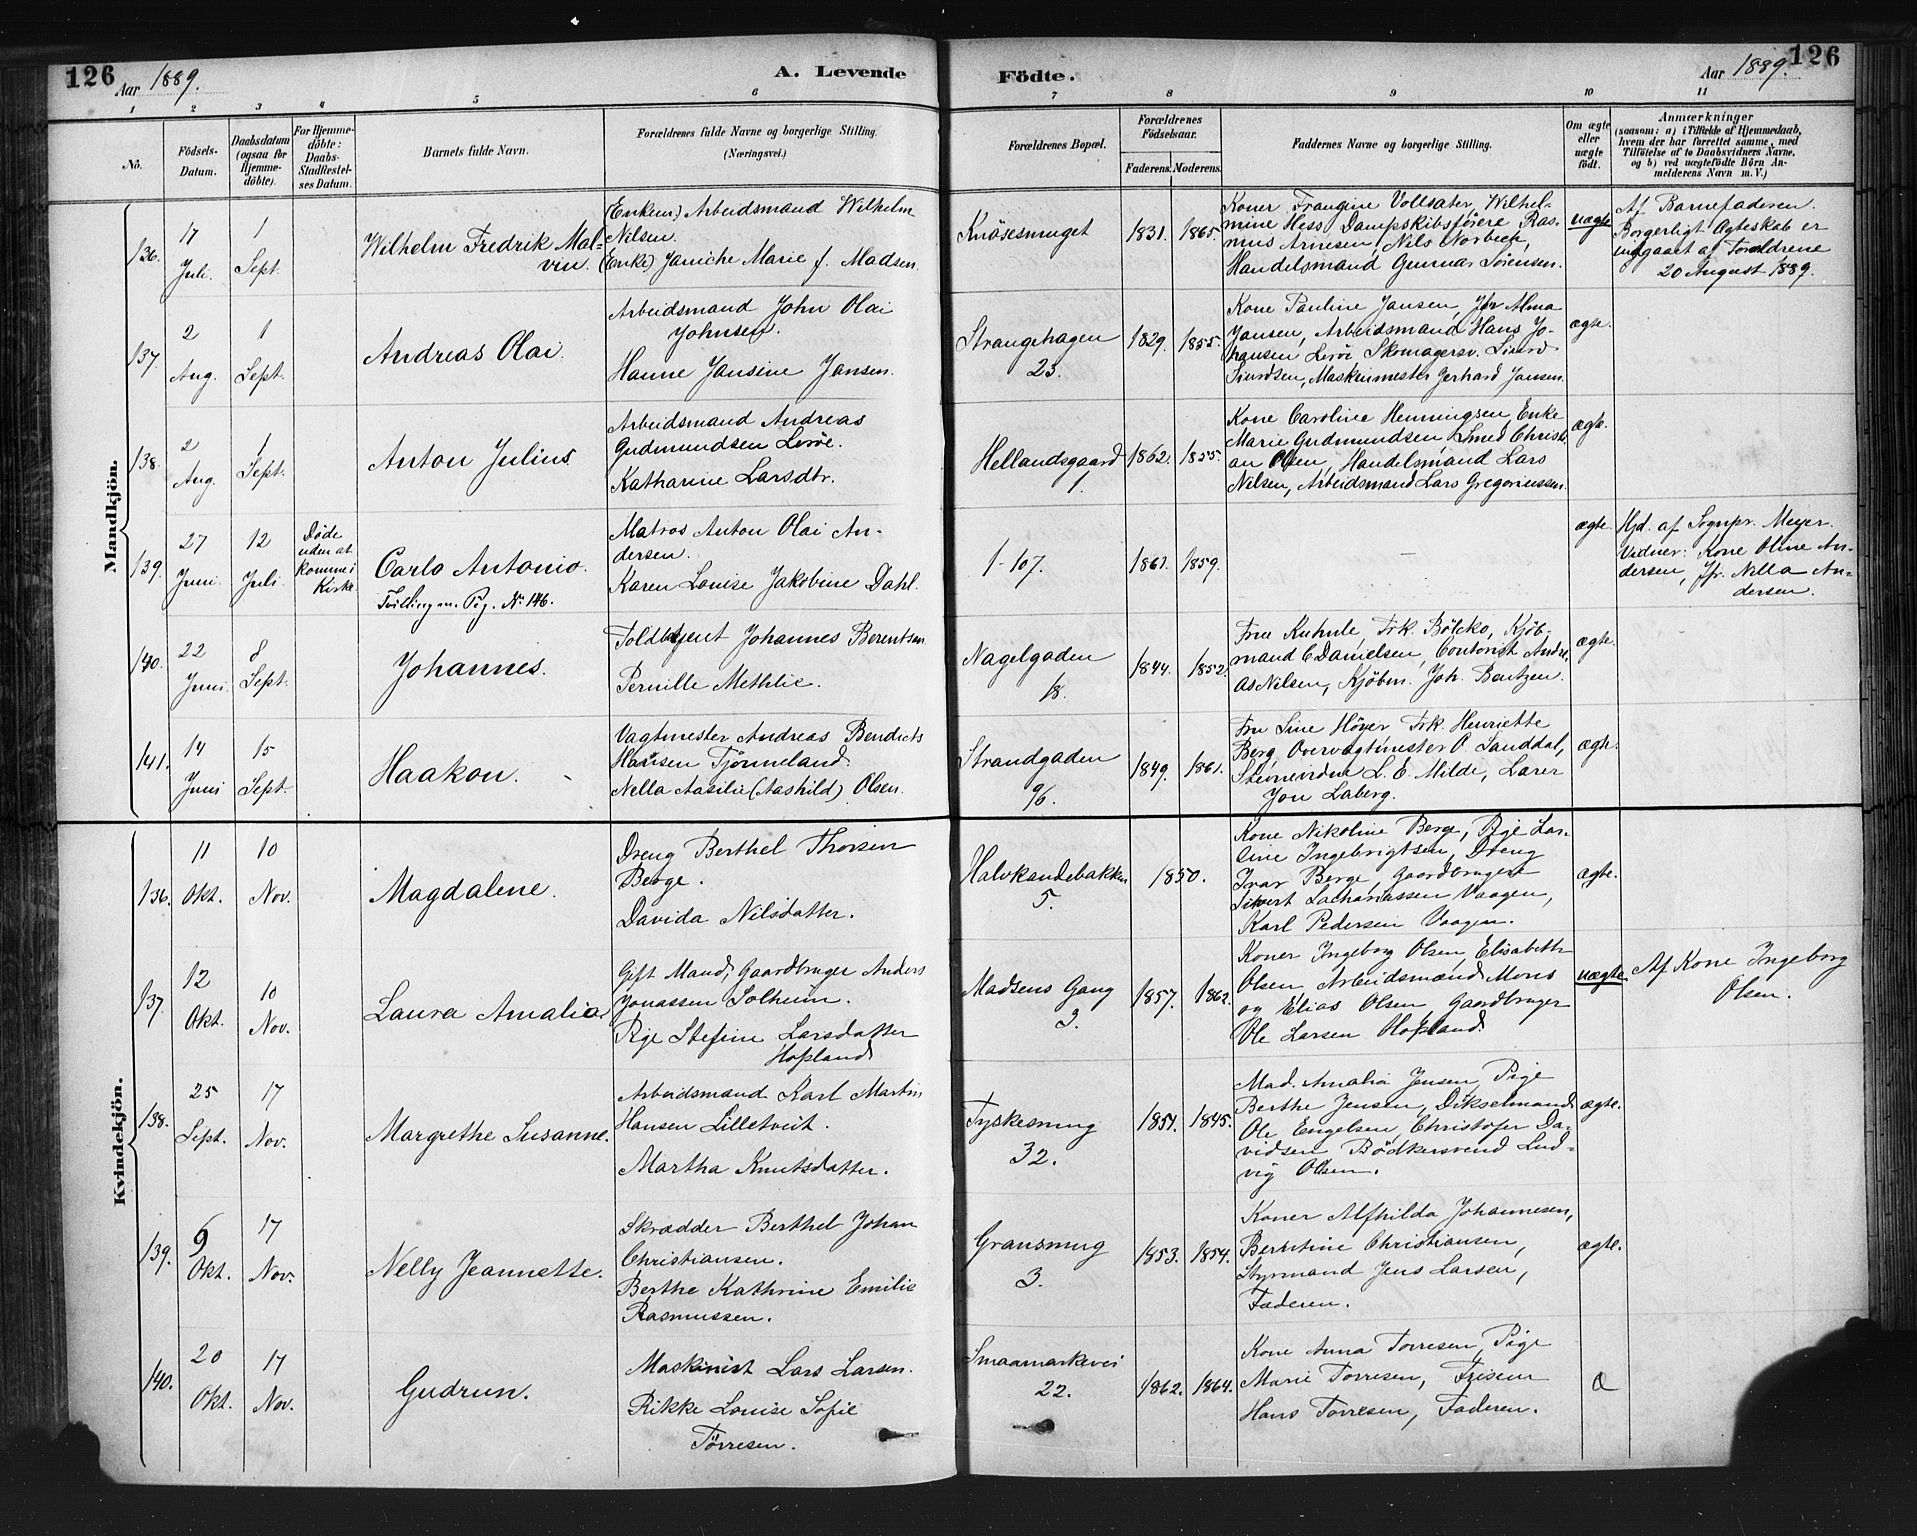 126
Aar 1889.
A. Levende
Födte.
Aar 1889.
126
1 2 3 4 5 6 7 8 9 10 11
Nö.
Födsels-
Datum.
Daabsdatum
(ogsaa for
Hjemme-
döbte).
For Hjemme-
döbte:
Daabs-
Stadfestel-
ses Datum.
Barnets fulde Navn.
Forældrenes fulde Navne og borgerlige Stilling.
(Næringsvei.)
Forældrenes Bopæl.
Forældrenes
Födselsaar.
Faderens. Moderens.
Faddernes Navne og borgerlige Stilling.
Om ægte
eller
uægte
födt.
Anmærkninger
(saasom: a) i Tilfælde af Hjemmedaab,
hvem der har forrettet samme, med
Tilföielse af to Daabsvidners Navne,
og b) ved uægtefödte Börn An-
melderens Navn m. V.)
Mandkjön.
136.
17
Juli.
1
Sept.
Wilhelm Fredrik Mal-
vin.
(Enkem) Arbeidsmand Wilhelm
Nilsen.
(Enke) Janiche Marie f. Madsen.
Knösesmuget
1831. 1865.
Koner Frangine Vollsater, Wilhel-
mine Hess, Dampskibsförere Ras-
mus Arnesen, Nils Norbeck,
Handelsmand Gunnar Sörensen.
uægte
Af Barnefaderen.
Borgerligt Ægteskab er
indgaaet af Forældrene
20 August 1889.
137.
2
Aug.
1
Sept.
Andreas Olai.
Arbeidsmand John Olai
Johnsen.
Hanne Jansine Jansen.
Strangehagen
23.
1829. 1855.
Kone Pauline Jansen, Jfr Alma
Jansen, Arbeidsmand Hans Jo-
hansen Leröe Skomagersv. Sivert
Sivertsen, Maskinmester Gerhard Jansen.
ægte.
138.
2
Aug.
1
Sept.
Anton Julius
Arbeidsmand Andreas
Gudmundsen Leröe.
Katharine Larsdtr.
Hellandsgaard
1.
1862. 1855.
Kone Caroline Henningsen, Enke
Marie Gudmundsen, Smed Christi-
an Olsen, Handelsmand Lars
Nilsen, Arbeidsmand Lars Gregoriussen.
ægte.
139.
27
Juni.
12
Juli.
Døde
uden at
komme i
Kirke
Carlo Antonio.
Tvilling m. Pig. No 146.
Matros Anton Olai An-
dersen.
Karen Louise Jakobine Dahl.
1-107.
1861. 1859.
—
ægte.
Hjd. af Sognpr. Meyer.
Vidner: Kone Oline An-
dersen, Jfr. Nilla An-
dersen.
140.
22
Juni.
8
Sept.
Johannes.
Toldbetjent Johannes Berentsen
Pernille Methlie.
Nagelgaden
18.
1844. 1852.
Fru Kuhnle, Frk. Bölcko, Kjöb-
mand C Danielsen, Contorist Andre-
as Nilsen, Kjöbm. Joh. Bentzen.
ægte.
141.
14
Juni
15
Sept.
Haakon.
Vagtmester Andreas Bendicts
Hansen Tjönneland.
Nella Aasilie (Aashild) Olsen.
Strandgaden
96.
1849. 1861.
Fru Sine Höyer Frk. Henriette
Berg, Overvagtmester O. Sanddal,
Stevnevidne L. E. Milde, Lærer
Jon Laberg.
ægte.
Kvindekjön.
136.
11
Okt.
10
Nov.
Magdalene.
Dreng Berthel Thorsen
Berge.
Davida Nilsdatter.
Halvkandebakken
5.
1850.
Kone Nikoline Berge, Pige Lar-
sine Ingebrigtsen, Dreng
Ivar Berge, Gaardbrugere
Sivert Zachariassen Vaagen,
Karl Pedersen Vaagen.
ægte.
137.
12
Okt.
10
Nov.
Laura Amalia.
Gift Mand, Gaardbruger Anders
Jonassen Solheim.
Pige Stefine Larsdatter
Hopland
Madsens Gang
3.
1857. 1862.
Koner Ingeborg Olsen, Elisabeth
Olsen Arbeidsmænd Mons
og Elias Olsen, Gaardbruger
Ole Larsen Hopland.
uægte
Af Kone Ingeborg
Olsen.
138.
25
Sept.
17
Nov.
Margrethe Susanne.
Arbeidsmand Karl Martin
Hansen Lilletveit.
Martha Knutsdatter.
Tyskesmug
32.
1851. 1845.
Mad. Amalia Jensen, Pige
Berthe Jensen, Dikselmand
Ole Engelsen, Christofer Da-
vidsen, Bödkersvend Lud-
vig Olsen.
ægte.
139.
9
Okt.
17
Nov.
Nelly Jeannette.
Skrædder Berthel Johan
Christiansen.
Berthe Kathrine Emilie
Rasmussen.
Gransmug
3.
1853. 1854.
Koner Alfhilda Johannesen,
Berntine Christiansen,
Styrmand Jens Larsen,
Faderen.
ægte.
140.
20
Okt.
17
Nov.
Gudrun.
Maskinist Lars Larsen.
Rikke Louise Sofie
Törresen.
Smaamarkevei
22.
1862. 1864.
Kone Anna Torresen, Pige
Marie Torresen, Friserer
Hans Torresen, Faderen.
Æ